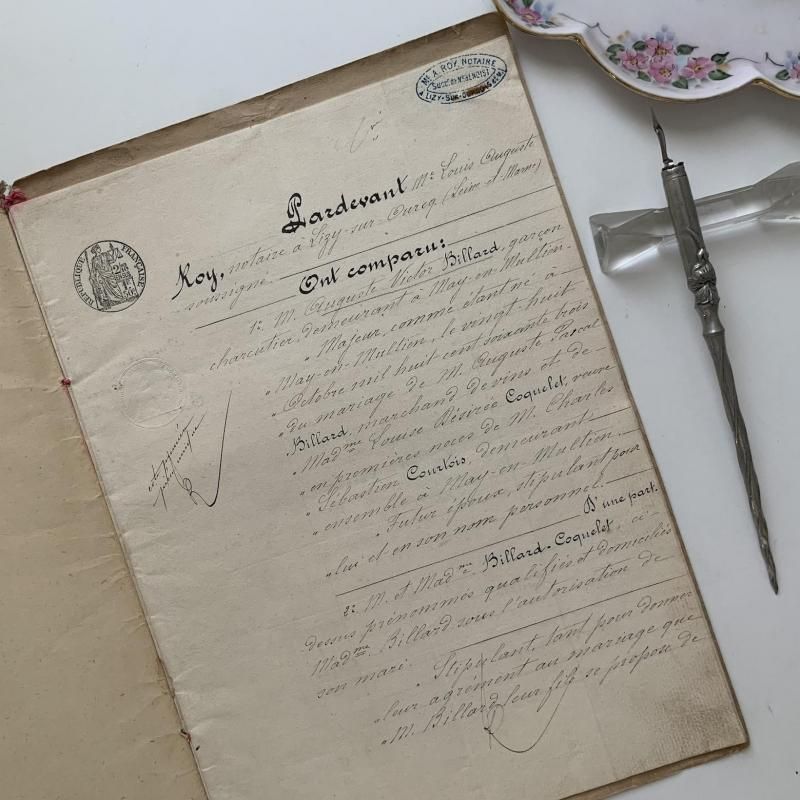 Me A. ROY, NOTAIRE
Succr de Me BENOIST
A LIZY-SUR-OURCQ (S.et M.)
Pardevant Me Louis Auguste
Roy, notaire à Lizy-sur-Ourcq (Seine-et-Marne)
soussigné.
Ont comparu:
RÉPUBLIQUE FRANÇAISE
1e M. Auguste Victor Billard, garçon
charcutier, demeurant à May-en-Multien.
" Majeur, comme étant né à
" May-en-Multien, le vingt-huit
" Octobre mil huit cent soixante trois
" du mariage de M. Auguste Pascal
Billard, marchand de vins et de
" Madme Louise Désirée Coquelet, veuve
" en premières noces de M. Charles
" Sébastien Courtois, demeurant
" ensemble à May-en-Multien.
" Futur époux, stipulant pour
" lui et en son nom personnel.
D'une part.
2e M. et Madme Billard-Coquelet, ci-
dessus prénommés qualifiés et domiciliés
Madme Billard sous l'autorisation de
son mari.
" Stipulant, tant pour donner
" leur agrément au mariage que
" M. Billard leur fils se propose de